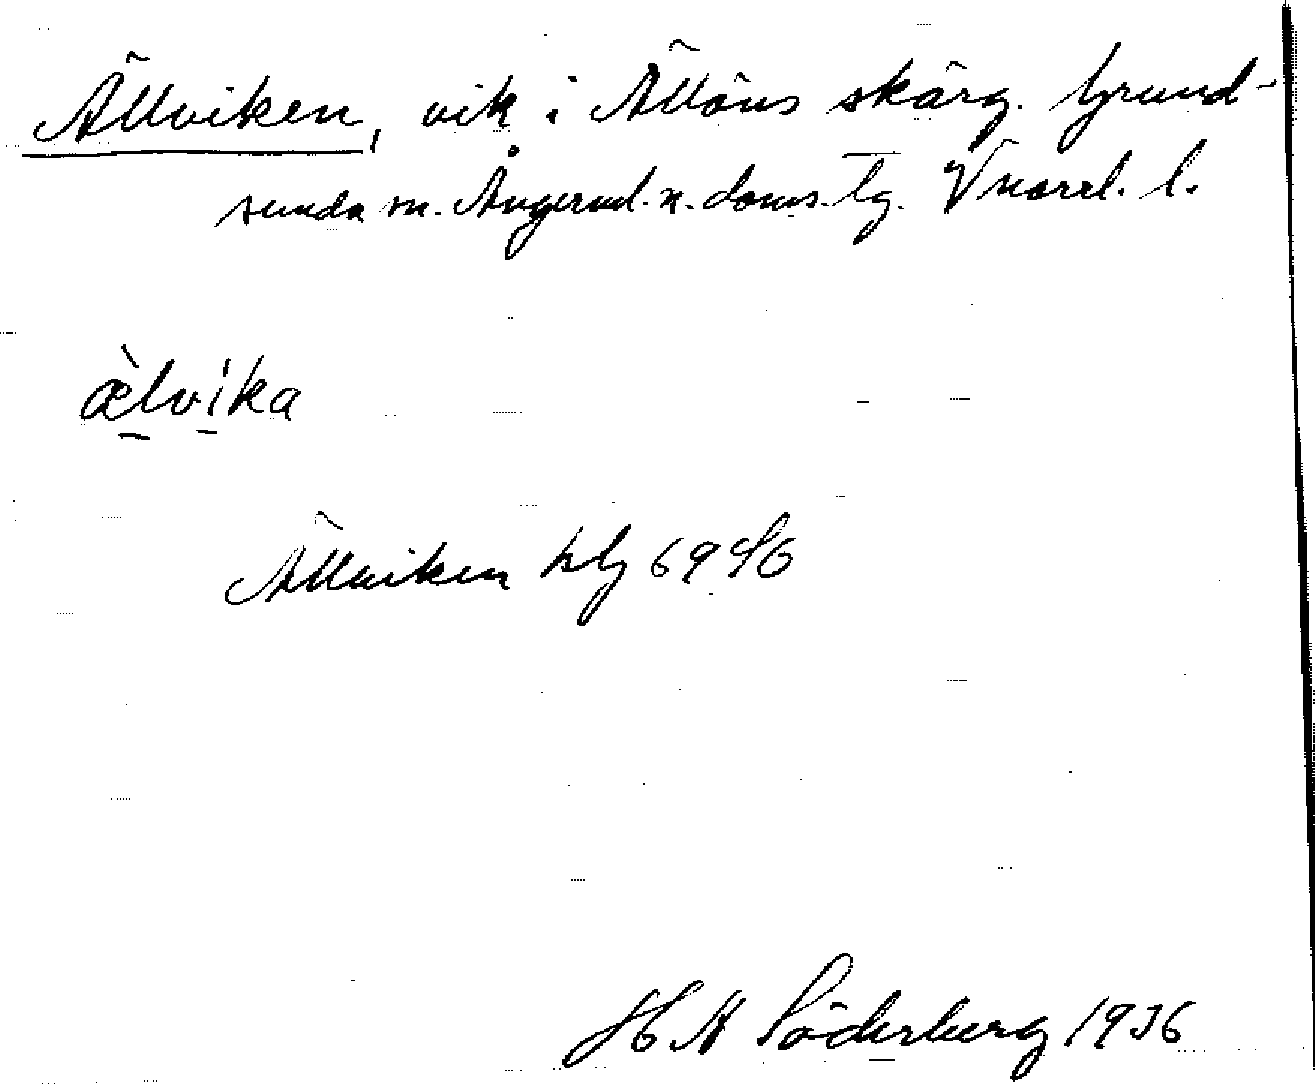 Ällviken, vik i Ällöns skärg. Grund-
sunda sn. Ångerml. n. doms.lg. Vnorrl. l.
æ̀lvika
Ällviken hlg 69 S6
H A Söderberg 1936